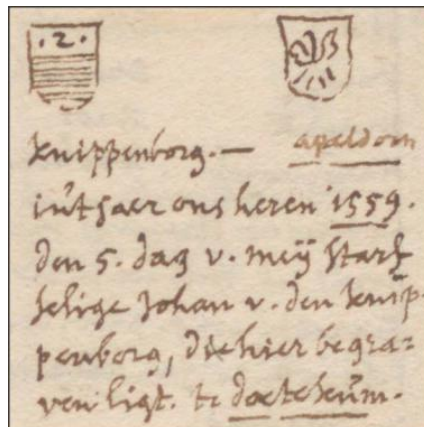 .2.
knippenborg. — apeldorn
in't jaer ons heren 1559.
den 5. dag v. meÿ starf
selige Johan v. den knip-
penborg, die hier begra=
ven ligt. te doeteküm.